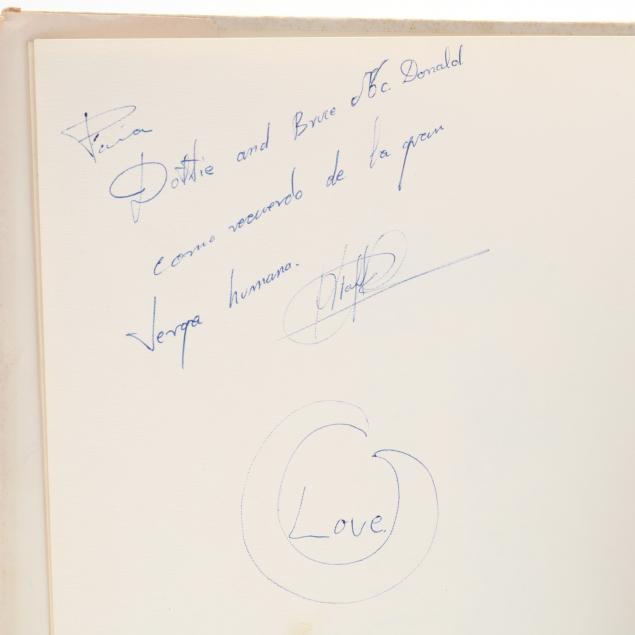 Para
Dottie and Bruce Mc. Donald
como recuerdo de la gran
Verga humana.
Love